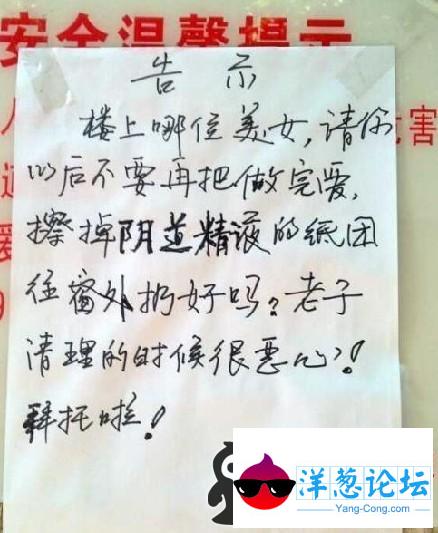 安全温馨提示
告示
楼上哪位美女，请你
以后不要再把做完爱，
擦掉阴道精液的纸团
往窗外扔好吗？老子
清理的时候很恶心！
拜托啦！
危害
洋葱论坛
Yang-Cong.com